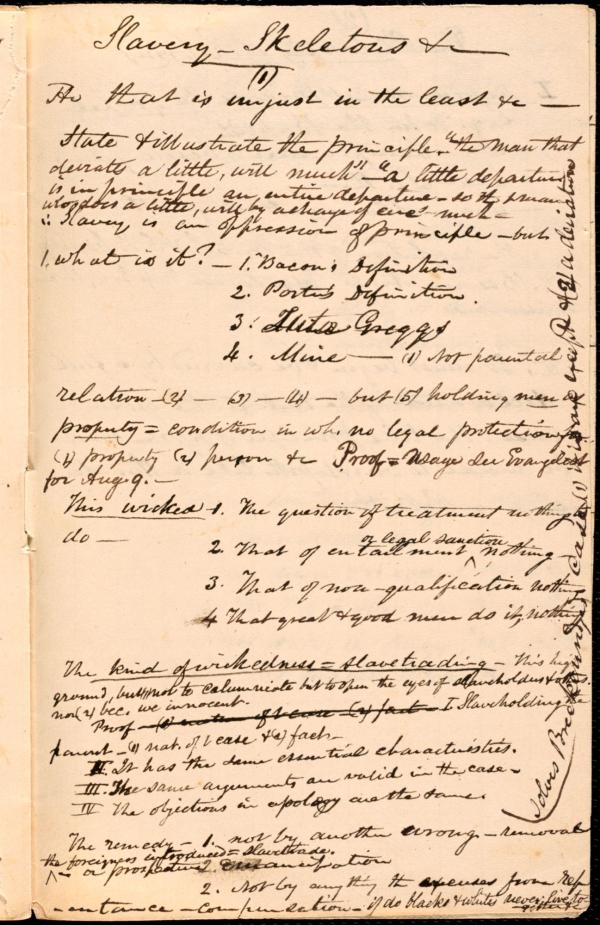 Slavery — Skeletons &c
(1)
He that is unjust in the least &c —
State & illustrate the principle — "the man that
deviates a little, will much" — "a little departure
is in principle an entire departure — so the man
who does a little, will by a change of circs much —
∴ Slavery is an oppression of principle — but
1. what is it? — 1. Bacon's Definition
2. Porter's Definition.
3. Greggs
4. Mine — (1) Not parental
relation — (2) — (3) — (4) — but (5) holding men
property = condition in wh. no legal protection
(1) property (2) person &c Proof = Usage See Evangelist
for Aug. 9. —
This wicked — 1. The question of treatment nothing
do —
or legal sanction
2. That of entailment ^ nothing
3. That of non-qualification nothing
4 That great & good men do it, nothing
The kind of wickedness = slavetrading — This high
ground, but not to calumniate but to open the eyes of slaveholders &
nor (2) bec. we innocent.
Proof — (1) nature of t case (2) fact — I Slaveholding
parent — (1) nat. of t case & (2) fact —
II. It has the same essential characteristics.
III. The same arguments are valid in the case —
IV The objections in apology are the same.
The remedy — 1. not by another wrong — removal
the foreigners introduced = slavetrade.
^ — or prospective emancipation
2. Not by anything the excuses from rep
-entance — compensation — if do blacks & whites never live to-
gether
Solves Breckinridge's case